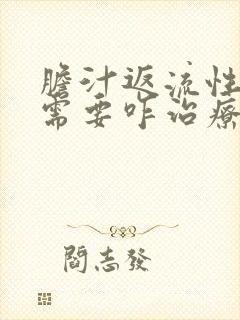 膽汁返流性
需要咋治療
閻志發